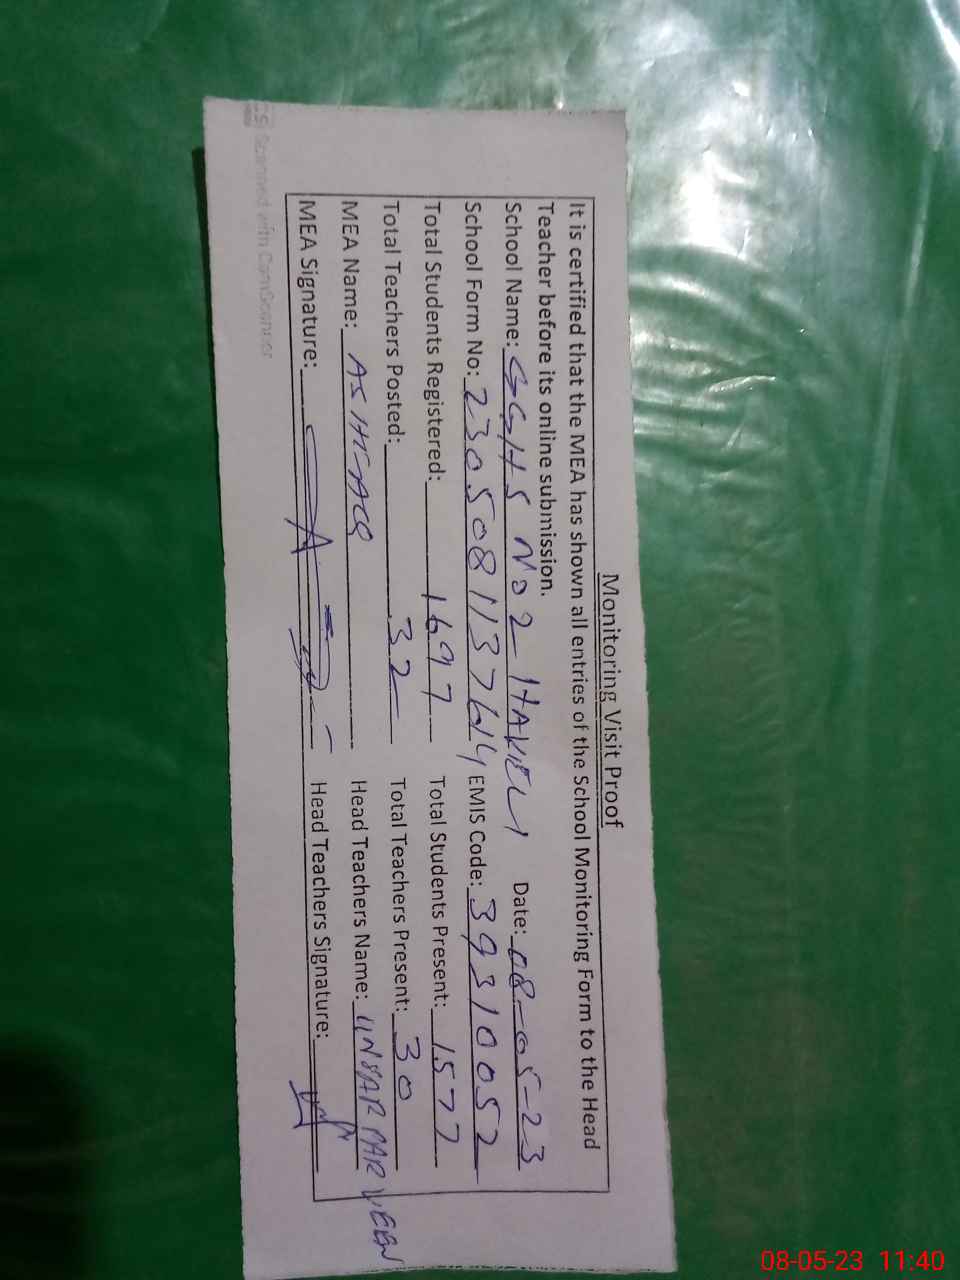 Monitoring Visit Proof
It is certified that the MEA has shown all entries of the School Monitoring Form to the Head
Teacher before its online submission.
School Name: GGHS NO 2 HAVELI Date: 08-05-23
School Form No: 23050811376414 EMIS Code: 39310052
Total Students Registered: 1697 Total Students Present: 1577
Total Teachers Posted: 32 Total Teachers Present: 30
MEA Name: ASHFAQ Head Teachers Name: PARVEEN
MEA Signature: Head Teachers Signature:
CS Scanned with CamScanner
08-05-23 11:40